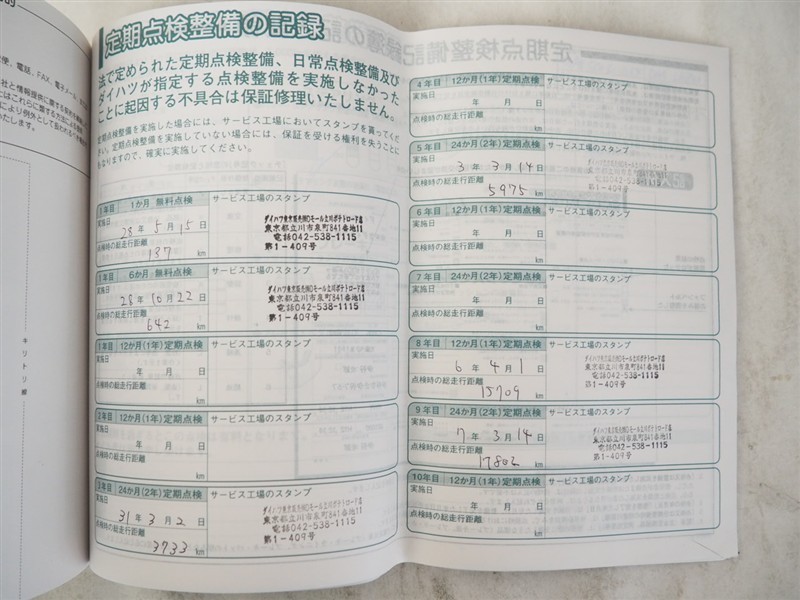 定期点検整備の記録
法で定められた定期点検整備、日常点検整備及び
ダイハツが指定する点検整備を実施しなかった
ことに起因する不具合は保証修理いたしません。
定期点検整備を実施した場合には、サービス工場においてスタンプを貰ってくだ
さい。定期点検整備を実施していない場合には、保証を受ける権利を失うことに
なりますので、確実に実施してください。
1年目 1か月 無料点検 サービス工場のスタンプ
実施日
28年 5月 15日
点検時の総走行距離
137 km
ダイハツ東京販売㈱Dモール立川ポテトロード店
東京都立川市泉町841番地11
電話042-538-1115
第1-409号
1年目 6か月 無料点検 サービス工場のスタンプ
実施日
28年 10月 22日
点検時の総走行距離
642 km
ダイハツ東京販売㈱Dモール立川ポテトロード店
東京都立川市泉町841番地11
電話042-538-1115
第1-409号
1年目 12か月(1年)定期点検 サービス工場のスタンプ
実施日
年 月 日
点検時の総走行距離
km
2年目 12か月(1年)定期点検 サービス工場のスタンプ
実施日
年 月 日
点検時の総走行距離
km
3年目 24か月(2年)定期点検 サービス工場のスタンプ
実施日
31年 3月 2日
点検時の総走行距離
3733 km
ダイハツ東京販売㈱Dモール立川ポテトロード店
東京都立川市泉町841番地11
電話042-538-1115
第1-409号
4年目 12か月(1年)定期点検 サービス工場のスタンプ
実施日
年 月 日
点検時の総走行距離
km
5年目 24か月(2年)定期点検 サービス工場のスタンプ
実施日
3年 3月 14日
点検時の総走行距離
5975 km
ダイハツ東京販売㈱Dモール立川ポテトロード店
東京都立川市泉町841番地11
電話042-538-1115
第1-409号
6年目 12か月(1年)定期点検 サービス工場のスタンプ
実施日
年 月 日
点検時の総走行距離
km
7年目 24か月(2年)定期点検 サービス工場のスタンプ
実施日
年 月 日
点検時の総走行距離
km
8年目 12か月(1年)定期点検 サービス工場のスタンプ
実施日
6年 4月 1日
点検時の総走行距離
15709 km
ダイハツ東京販売㈱Dモール立川ポテトロード店
東京都立川市泉町841番地11
電話042-538-1115
第1-409号
9年目 24か月(2年)定期点検 サービス工場のスタンプ
実施日
7年 3月 14日
点検時の総走行距離
17802 km
ダイハツ東京販売㈱Dモール立川ポテトロード店
東京都立川市泉町841番地11
電話042-538-1115
第1-409号
10年目 12か月(1年)定期点検 サービス工場のスタンプ
実施日
年 月 日
点検時の総走行距離
km
キリトリ線